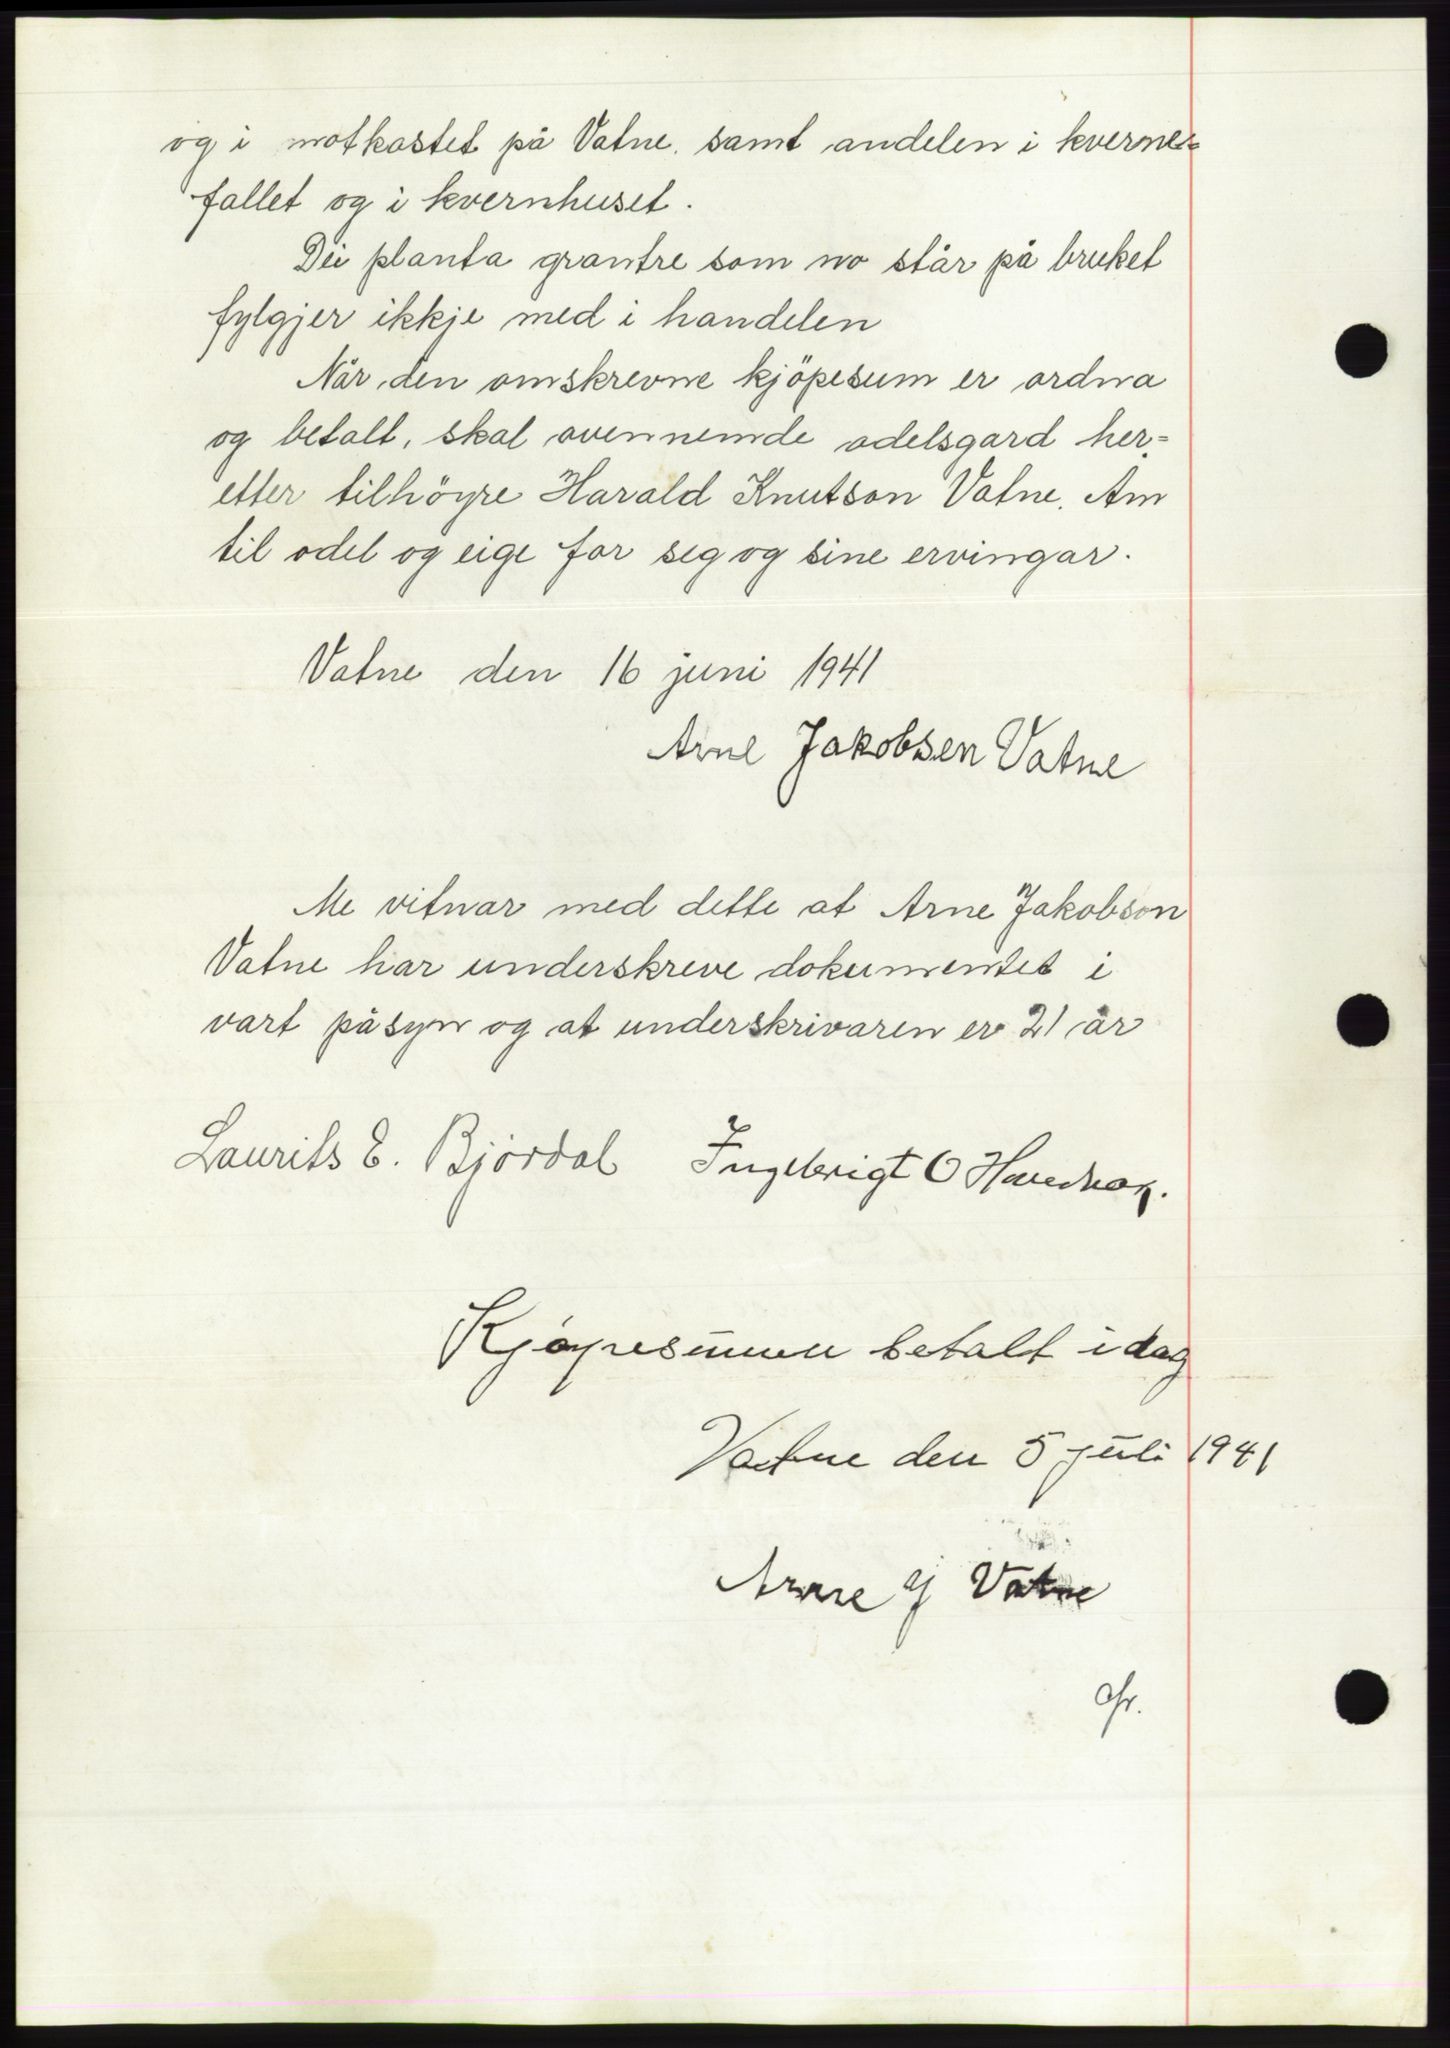 og i notkastet på Vatne. samt andelen i kverne=
fallet og i kvernhuset.
Dei planta grantre som no står på bruket
fylgjer ikkje med i handelen
Når den omskrevne kjöpesum er ordna
og betalt, skal ovennemde odelsgard her=
etter tilhöyre Harald Knutson Vatne. Am
til odel og eige for seg og sine ervingar.
Vatne den 16 juni 1941
Arne Jakobsen Vatne
Me vitnar med dette at Arne Jakobson
Vatne har underskreve dokumentet i
vart påsyn og at underskrivaren er 21 år
Laurits E. Bjørdal Ingebrigt O
Kjøpesummen betalt idag
Vatne den 5 juli 1941
Arne J Vatne